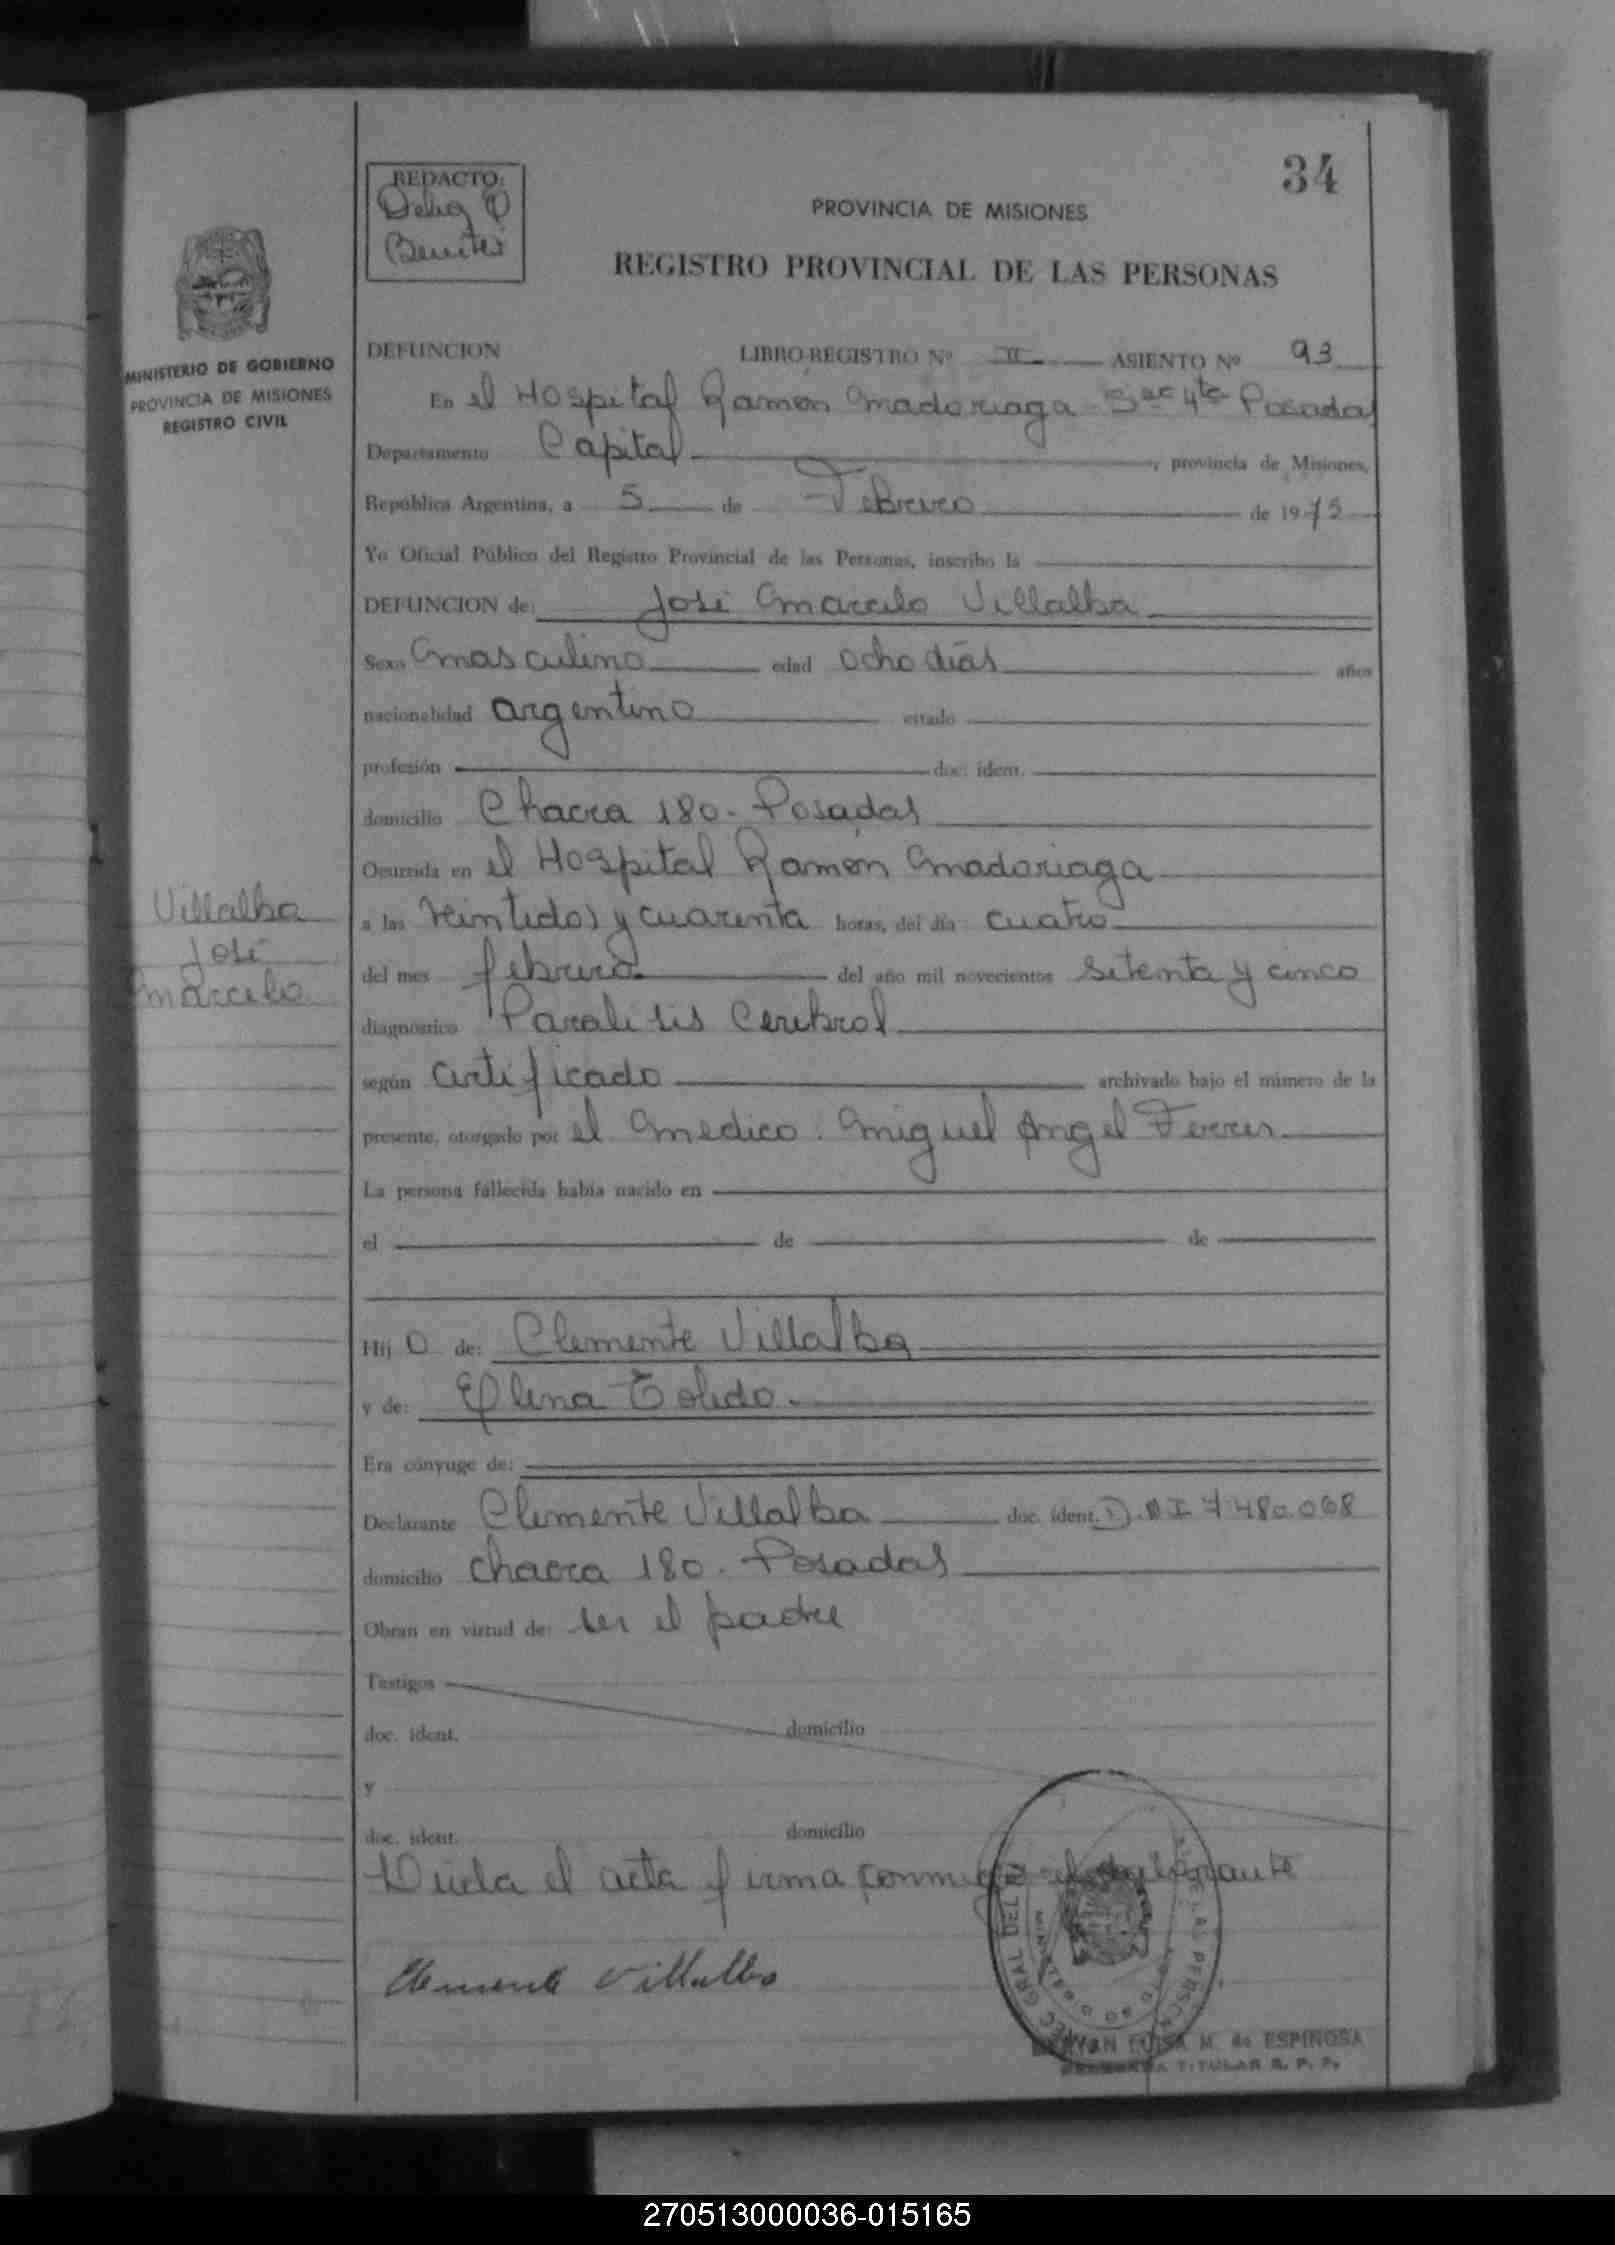 34
REDACTO:
Delia
Benitez
PROVINCIA DE MISIONES
REGISTRO PROVINCIAL DE LAS PERSONAS
MINISTERIO DE GOBIERNO
PROVINCIA DE MISIONES
REGISTRO CIVIL
DEFUNCION LIBRO-REGISTRO Nº II ASIENTO Nº 93
En el Hospital Ramón Madariaga Sec 4ta Posadas
Departamento Capital, provincia de Misiones,
República Argentina, a 5 de Febrero de 1975
Yo Oficial Público del Registro Provincial de las Personas, inscribo la
DEFUNCION de: José Marcelo Villalba
Sexo Masculino edad Ocho días años
nacionalidad argentino estado
profesión doc. ident.
domicilio Chacra 180. Posadas
Ocurrida en el Hospital Ramón Madariaga
Villalba
José
Marcelo
a las veintidos y cuarenta horas, del día cuatro
del mes febrero del año mil novecientos setenta y cinco
diagnóstico Paralisis Cerebral
según certificado archivado bajo el número de la
presente, otorgado por el Medico. Miguel Angel Ferrer
La persona fallecida había nacido en
el de de
Hij O de: Clemente Villalba
y de: Elena Toledo.
Era cónyuge de:
Declarante Clemente Villalba doc. ident. D.N.I 7480.068
domicilio Chacra 180. Posadas
Obran en virtud de: ser el padre
Testigos
doc. ident. domicilio
y
doc. ident. domicilio
Leida el acta firma conmigo el declarante
Clemente Villalba
LUISA M. de ESPINOSA
TITULAR R. P. P.
270513000036-015165